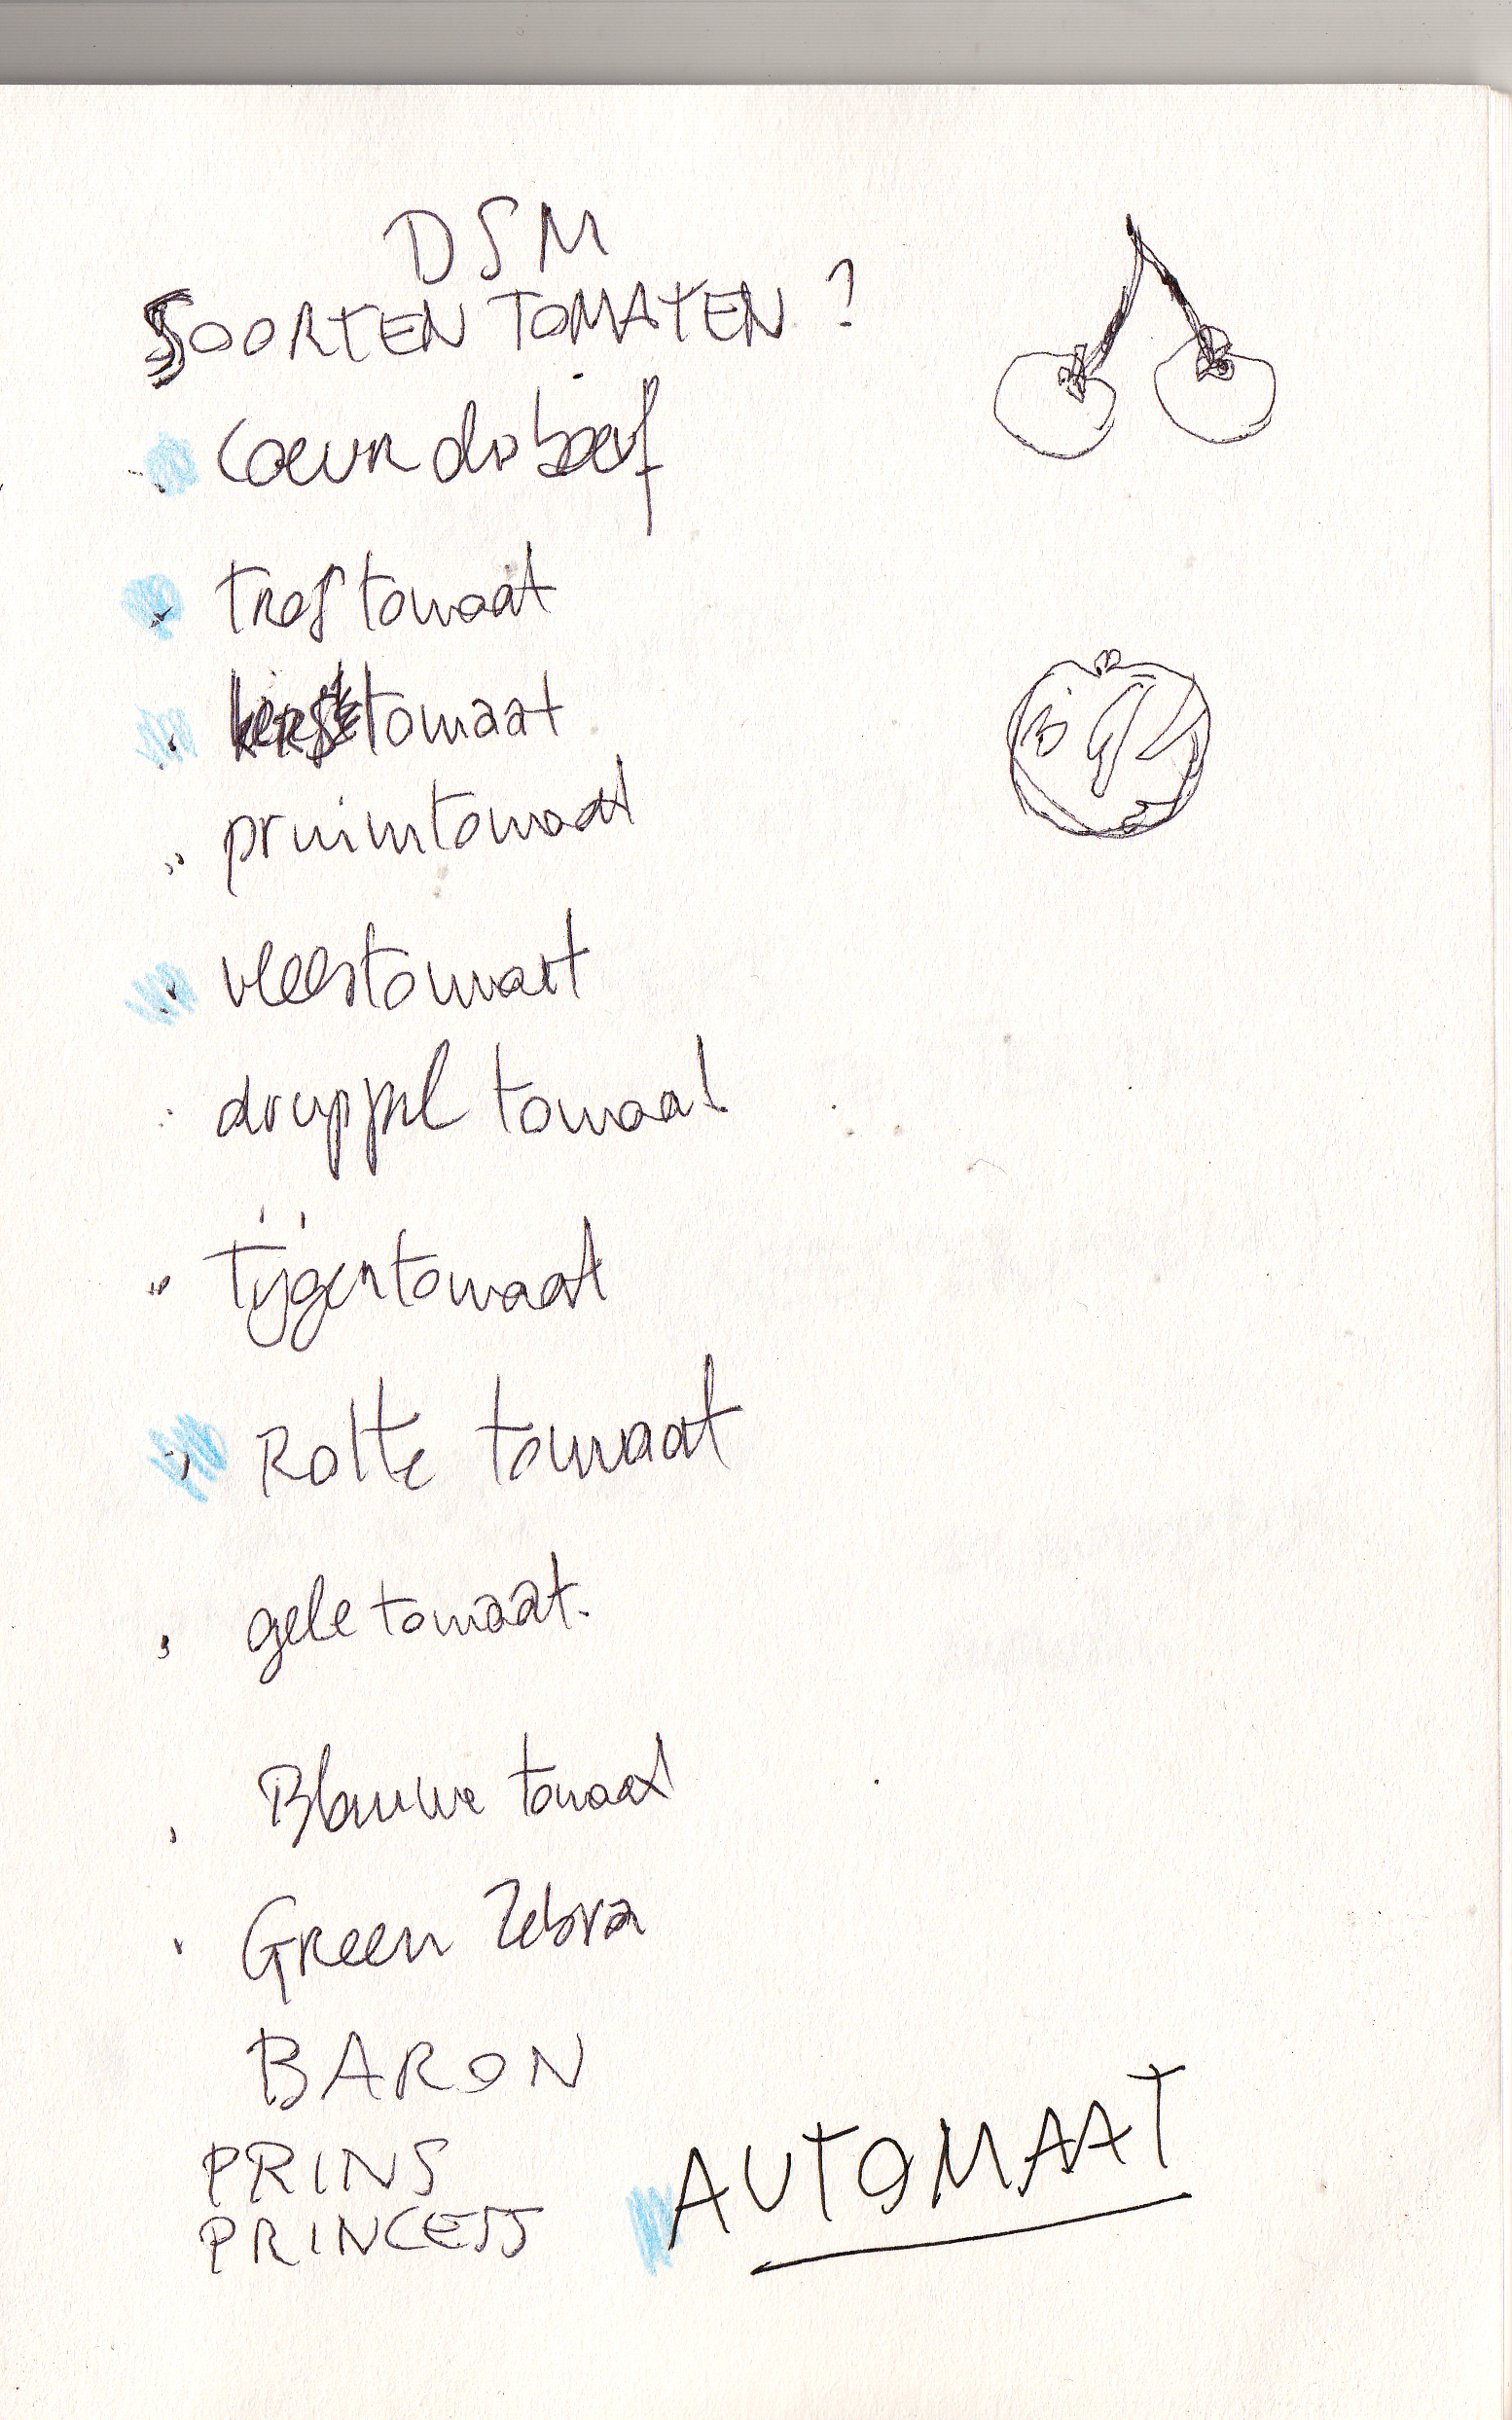 DSM
SOORTEN TOMATEN ?
Coeur de boeuf
tros tomaat
kerstomaat
pruimtomaat
vleestomaat
druppel tomaat
Tijgertomaat
Rotte tomaat
gele tomaat.
Blauwe tomaat
Green Zebra
BARON
PRINS
PRINCESS
AUTOMAAT